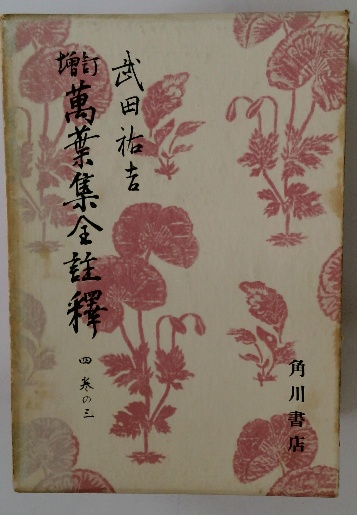 武田祐吉
増訂
萬葉集全註釋
四 巻の三
角川書店